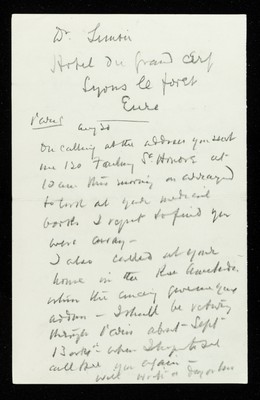 Dr.
Hotel du Grand Cerf
Lyons le foret
Eure
Paris Aug 30
On calling at the address you sent
me 120 Faubourg St Honoré at
10 am this morning as arranged
to look at your medical
books I regret to find you
were away –
I also called at your
home in the Rue
when the concierge gave me your
address – I shall be returning
through Paris about Sept
13 or 14th when I hope to
call & see you again –
will write a day or two